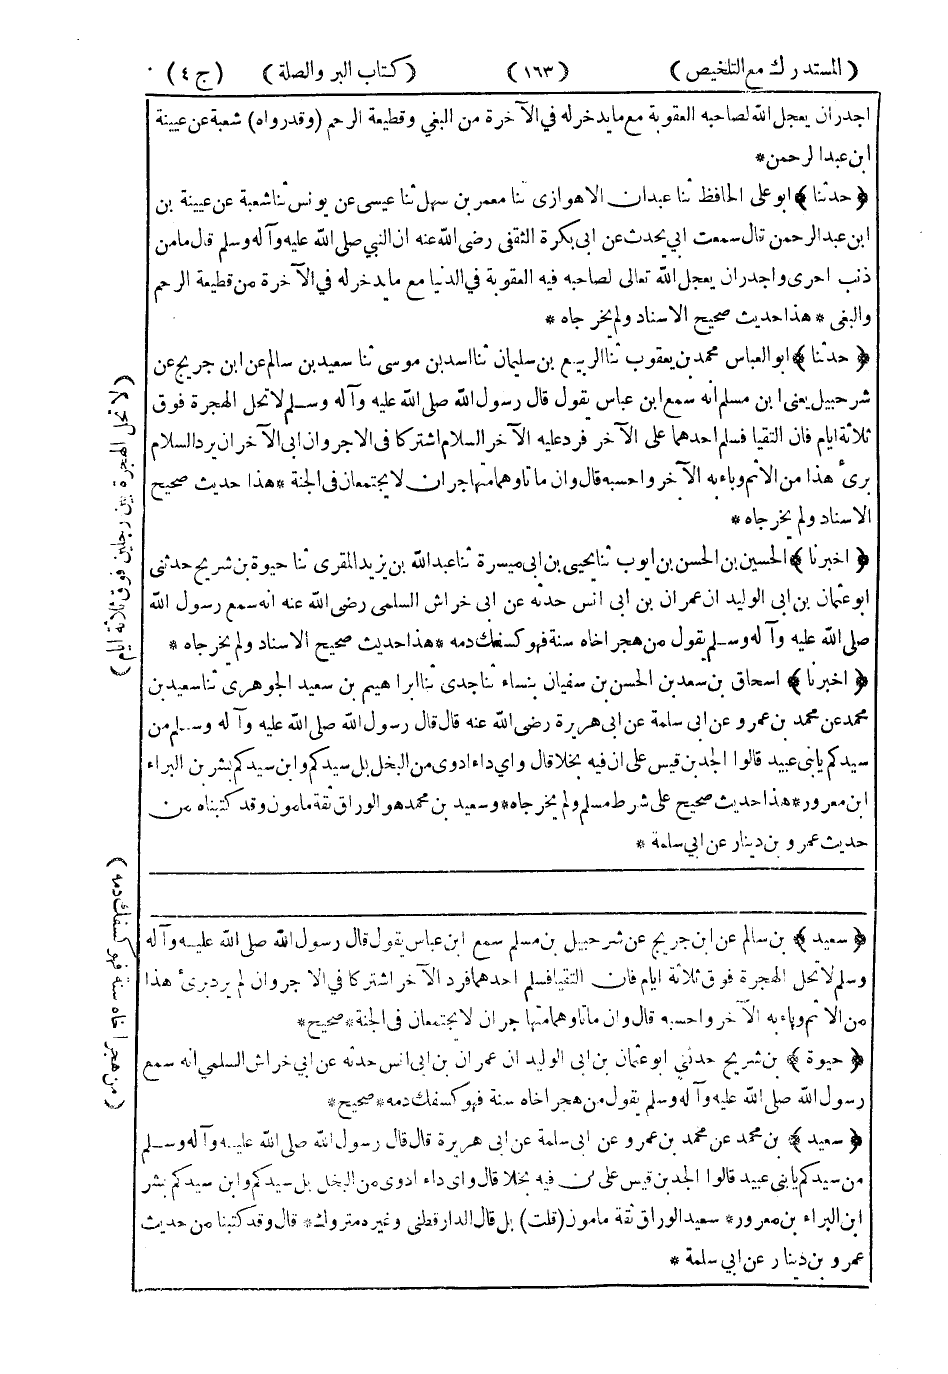 (المستدرك مع التلخيص) (١٦٣) (كتاب البر والصلة) (ج ٤)
اجدران يعجل الله لصاحبه العقوبة مع مايدخرله فى الآخرة من البغي وقطيعة الرحم (وقدرواه) شعبة عن عيينة
ابن عبدالرحمن*
﴿ حدثنا ﴾ ابو على الحافظ ثنا عبدان الاهوازى ثنا معمر بن سهل ثنا عيسى عن يونس ثنا شعبة عن عيينة بن
ابن عبدالرحمن قال سمعت ابي يحدث عن ابى بكرة الثقفى رضى الله عنه ان النبي صلى الله عليه وآله وسلم قال مامن
ذنب احرى واجدران يعجل الله تعالى لصاحبه فيه العقوبة فى الدنيا مع مايدخرله فى الآخرة من قطيعة الرحم
والبغى * هذا حديث صحيح الاسناد ولم يخرجاه *
﴿ حدثنا ﴾ ابو العباس محمد بن يعقوب ثنا الربيع بن سليمان ثنا اسد بن موسى ثنا سعيد بن سالم عن ابن جريج عن
شرحبيل يعنى ابن مسلم انه سمع ابن عباس يقول قال رسول الله صلى الله عليه وآله وسلم لا تحل الهجرة فوق
ثلاثة ايام فان التقيا فسلم احدهما على الآخر فرد عليه الآخر السلام اشتركا فى الاجر وان ابى الآخر ان يرد السلام
برئ هذا من الاثم وباء به الآخر واحسبه قال وان ماتا وهما متهاجران لا يجتمعان فى الجنة * هذا حديث صحيح
الاسناد ولم يخرجاه *
﴿ اخبرنا ﴾ الحسين بن الحسن بن ايوب ثنا يحيى بن ابى ميسرة ثنا عبدالله بن يزيد المقرى ثنا حيوة بن شريح حدثنى
ابو عثمان بن ابى الوليد ان عمران بن ابى انس حدثه عن ابى خراش السلمى رضى الله عنه انه سمع رسول الله
صلى الله عليه وآله وسلم يقول من هجر اخاه سنة فهو كسفك دمه *هذا حديث صحيح الاسناد ولم يخرجاه *
﴿ اخبرنا ﴾ اسحاق بن سعد بن الحسن بن سفيان بنساء ثنا جدى ثنا ابراهيم بن سعيد الجوهرى ثنا سعيد بن
محمد عن محمد بن عمرو عن ابى سلمة عن ابى هريرة رضى الله عنه قال قال رسول الله صلى الله عليه وآله وسلم من
سيدكم يابنى عبيد قالوا الجد بن قيس على ان فيه بخلا قال واي داء ادوى من البخل بل سيدكم وابن سيدكم بشر بن البراء
ابن معرور* هذا حديث صحيح على شرط مسلم ولم يخرجاه* وسعيد بن محمد هو الوراق ثقة مامون وقد كتبناه من
حديث عمرو بن دينار عن ابي سلمة *
﴿ سعيد ﴾ بن سالم عن ابن جريج عن شرحبيل بن مسلم سمع ابن عباس يقول قال رسول الله صلى الله عليه وآله
وسلم لا تحل الهجرة فوق ثلاثة ايام فان التقيا فسلم احدهما فرد الآخر اشتركا فى الاجر وان لم يرد برئ هذا
من الاثم وباء به الآخر واحسبه قال وان ماتا وهما متهاجران لا يجتمعان فى الجنة *صحيح*
﴿ حيوة ﴾ بن شريح حدثني ابو عثمان بن ابى الوليد ان عمران بن ابى انس حدثه عن ابي خراش السلمي انه سمع
رسول الله صلى الله عليه وآله وسلم يقول من هجر اخاه سنة فهو كسفك دمه*صحيح*
﴿ سعيد ﴾ بن محمد عن محمد بن عمرو عن ابى سلمة عن ابى هريرة قال قال رسول الله صلى الله عليه وآله وسلم
من سيدكم يابنى عبيد قالوا الجد بن قيس على ان فيه بخلا قال واى داء ادوى من البخل بل سيدكم وابن سيدكم بشر
ابن البراء بن معرور* سعيد الوراق ثقة مامون (قلت) بل قال الدارقطنى وغيره متروك* قال وقد كتبنا من حديث
عمرو بن دينار عن ابي سلمة *
(لا تحل الهجرة بين رجلين فوق ثلاثة ايام)
(من هجر اخاه سنة فهو كسفك دمه)